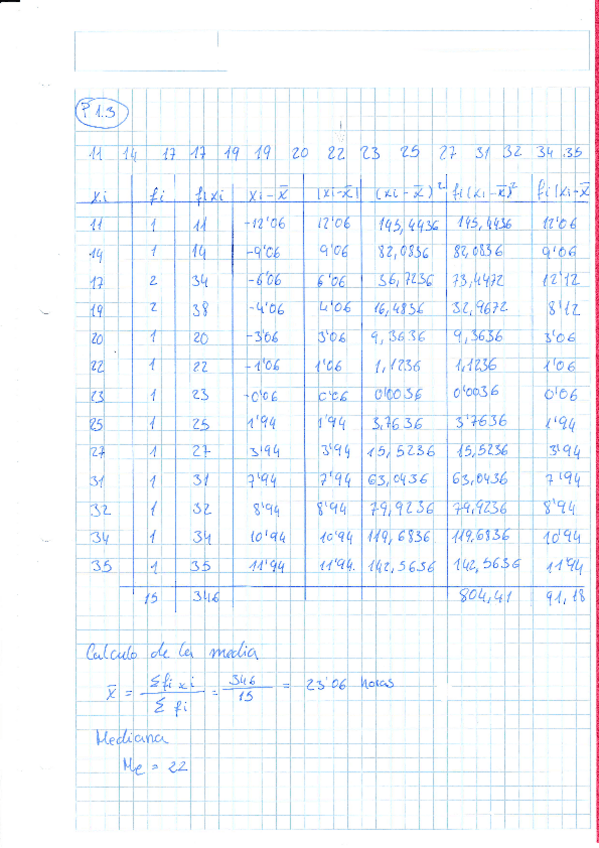 P 1.3
11 14 17 17 19 19 20 22 23 25 27 31 32 34 35
xi fi fixi xi-x̄ |xi-x̄| (xi-x̄)² fi(xi-x̄)² fi|xi-x̄
11 1 11 -12'06 12'06 145,4436 145,4436 12'06
14 1 14 -9'06 9'06 82,0836 82,0836 9'06
17 2 34 -6'06 6'06 36,7236 73,4472 12'12
19 2 38 -4'06 4'06 16,4836 32,9672 8'12
20 1 20 -3'06 3'06 9,3636 9,3636 3'06
22 1 22 -1'06 1'06 1,1236 1,1236 1'06
23 1 23 -0'06 0'06 0'0036 0'0036 0'06
25 1 25 1'94 1'94 3,7636 3'7636 1'94
27 1 27 3'94 3'94 15,5236 15,5236 3'94
31 1 31 7'94 7'94 63,0436 63,0436 7'94
32 1 32 8'94 8'94 79,9236 79,9236 8'94
34 1 34 10'94 10'94 119,6836 119,6836 10'94
35 1 35 11'94 11'94. 142,5636 142,5636 11'94
15 346 804,41 91,18
Calculo de la media
x̄ = Σfixi / Σfi = 346 / 15 = 23'06 horas
Mediana
Me = 22